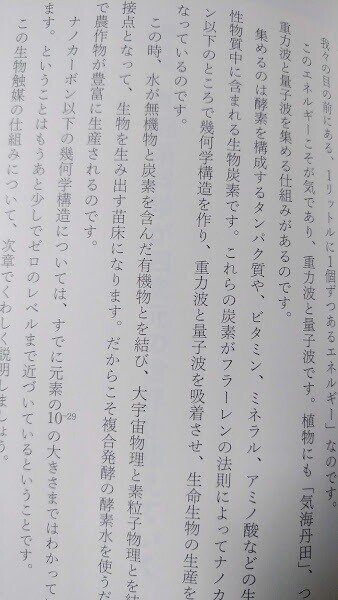 我々の目の前にある、１リットルに１個ずつあるエネルギー」なのです。
このエネルギーこそが気であり、重力波と量子波です。植物にも「気海丹田」、つ
重力波と量子波を集める仕組みがあるのです。
集めるのは酵素を構成するタンパク質や、ビタミン、ミネラル、アミノ酸などの生
性物質中に含まれる生物炭素です。これらの炭素がフラーレンの法則によってナノカ
ン以下のところで幾何学構造を作り、重力波と量子波を吸着させ、生命生物の生産を
なっているのです。
この時、水が無機物と炭素を含んだ有機物とを結び、大宇宙物理と素粒子物理とを結
接点となって、生物を生み出す苗床になります。だからこそ複合発酵の酵素水を使うだ
で農作物が豊富に生産されるのです。
ナノカーボン以下の幾何学構造については、すでに元素の10⁻²⁹の大きさまではわかって
ます。ということはもうあと少しでゼロのレベルまで近づいているということです。
この生物触媒の仕組みについて、次章でくわしく説明しましょう。